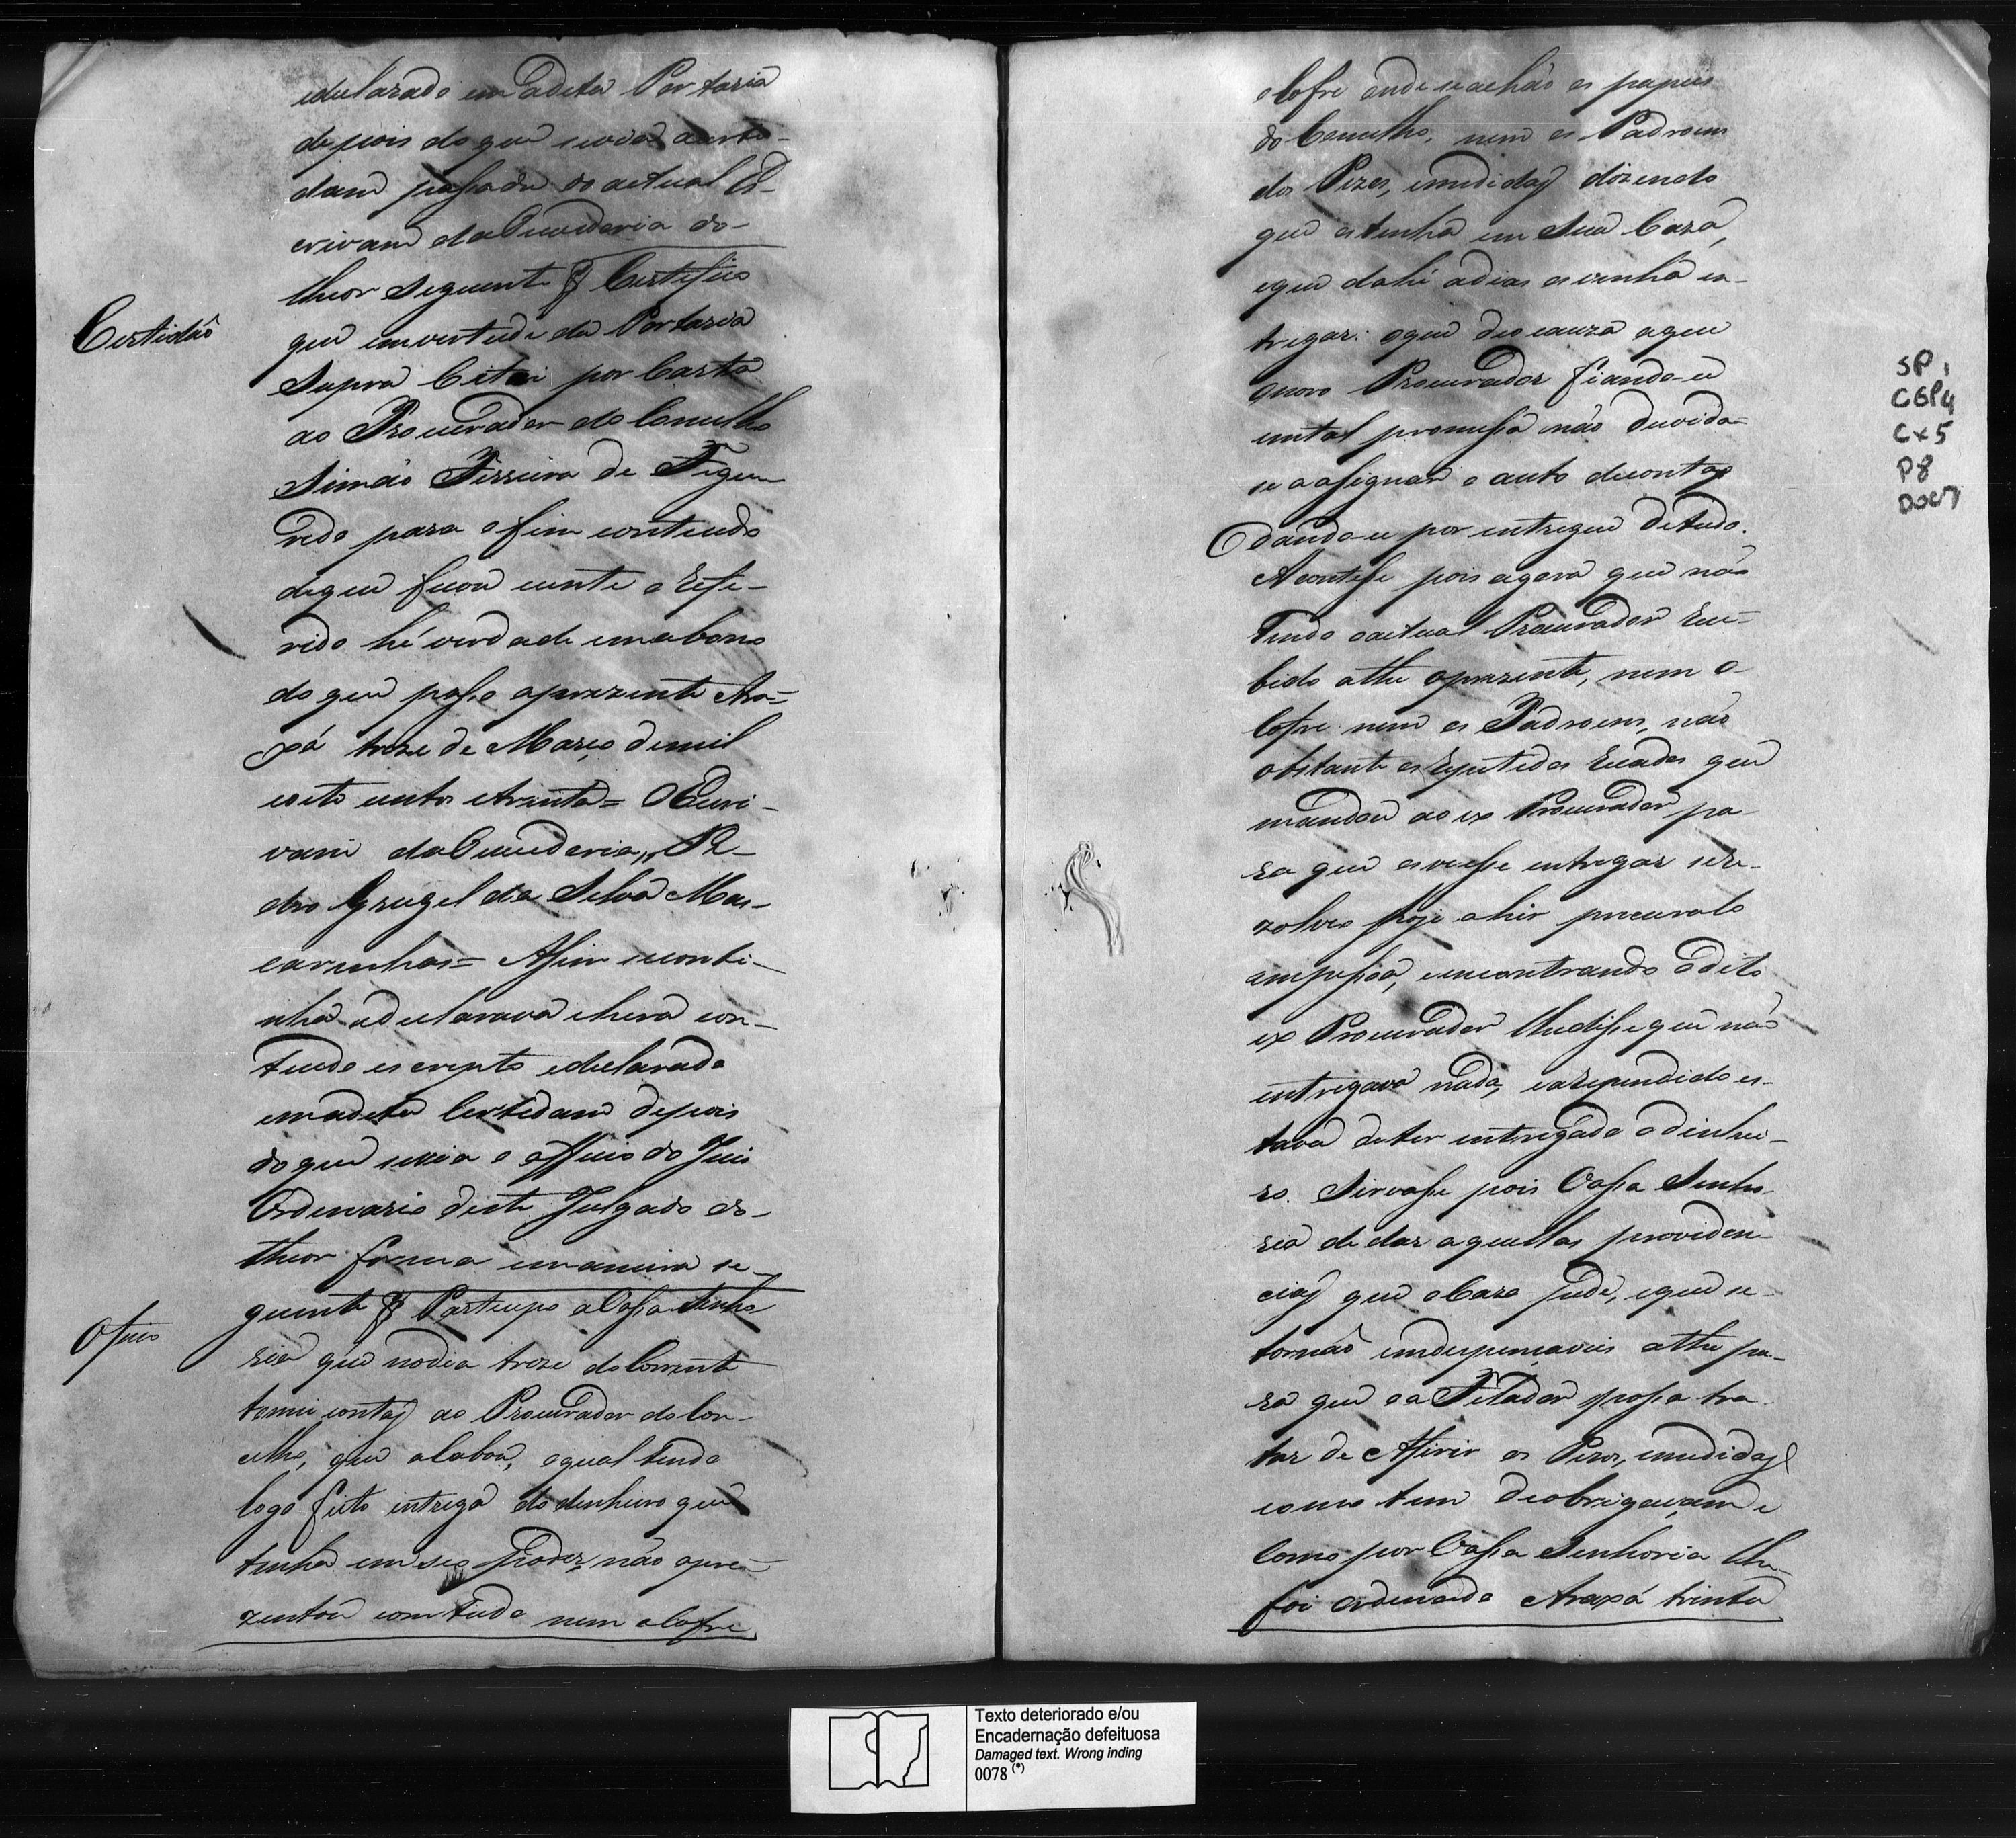 edeclarado em adeta Portaria
depois do que sevia a certi-
dam passada do actual Es-
crivam da Ouvedoria do-
theor seguente Certefico
Certidão
que em vertude da Portaria
Supra Citei por Carta
ao Procurador do Concelho
Simão Ferreira de Figuei
redo para o fim conteudo
deque ficou ciente o Refe-
rido hé verdade em abono
do que passo aprezente Ara-
xá treze de Março, de mil
eoito centos etrinta= O Escri-
vam da Ouvedoria, Pe-
dro Grugel da Silva Mas-
carenhas= Assim secontі-
nha edeclarava ehera con-
teudo escripto edeclarado
emadeta Certedam depois
do que sevia o officio do Juis
Ordenario deste Julgado do-
theor forma emaneira se-
guente Partecipo a Vossa Senho
Ofício
ria que nodia treze do Corrente
tomei contas ao Procurador do Con-
celho, que acabou, oqual tendo
logo feito intrega do denheiro que
tenha em seo poder, não apre-
zentou com tudo nem o Cofre
o Cofre onde seachão os papeis
do Concelho, nem os Padroens
dos Pezos, emedidas dizendo
que os tenha em Sua Caza,
eque dahi adias os venha en-
tregar: oque deo cauza aque
onovo Procurador fiando-se
emtal promessa não duvidа-
se aassignar o auto decontas
dando-se por entregue detudo.
Acontesse pois agora que não
Tendo oactual Procurador Rece-
bido athe oprezente, nem o
Cofre nem os Padroens, não
obstante os Repetidos Recados que
mandou ao ex Procurador pa-
ra que os viesse entregar sere-
zolveo hoje ahir procuralo
empessoa, eencontrando odito
ex Procurador lhedisse que não
entregava nada, earependido es-
tava deter entregado odinhei-
ro. Sirvasse pois Vossa Senho-
ria de dar aquellas providen-
cias que oCazo pede, eque se
tornão emdespençaveis athe pa-
ra que o a Filador possa tra-
tar de Afirir os Pezos, emedidas
como tem deobrigaçam e
Como por Vossa Senhoria lhe
foi ordenado Araxá trinta
SP,
CGP4
Cx5
P8
DOC7
Texto deteriorado e/ou
Encadernação defeituosa
Damaged text. Wrong inding
0078 (*)